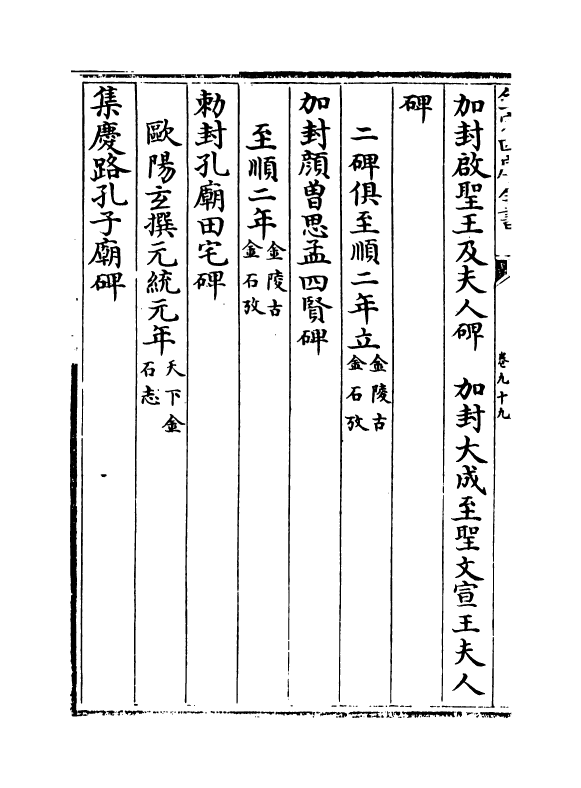 加封啟聖王及夫人碑　加封大成至聖文宣王夫人
碑
二碑俱至順二年立金陵古金石攷
加封顔曾思孟四賢碑
至順二年金陵古金石攷
勅封孔廟田宅碑
歐陽玄撰元統元年天下金石志
集慶路孔子廟碑
卷九十九